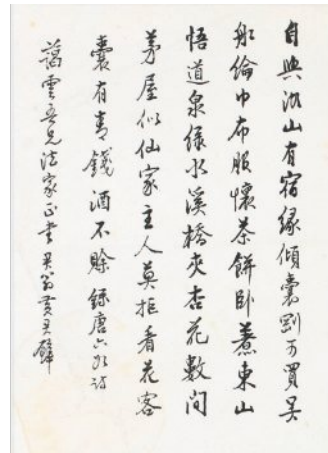 自與湖山有宿緣傾囊剛可買吳
船綸巾布服懷茶餅卧煮東山
悟道泉綠水溪橋夾杏花數間
茅屋似仙家主人莫拒看花客
囊有青錢酒不賒錄唐六如詩
藹雲吾兄法家正書君翁黃君璧